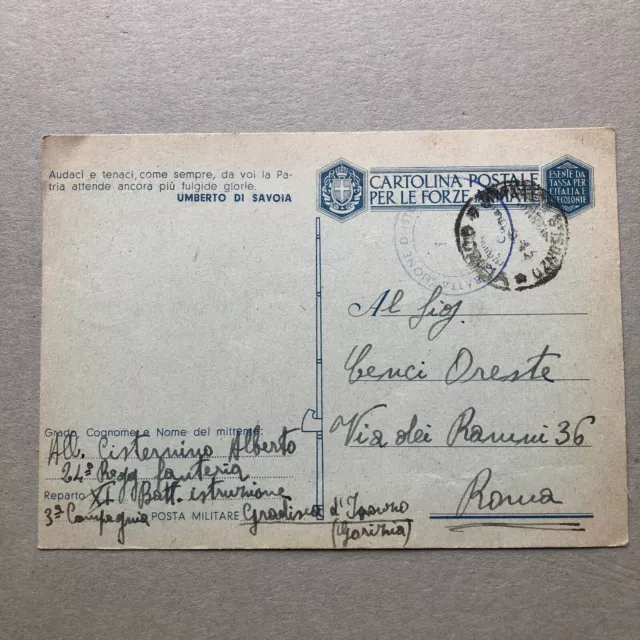 Audaci e tenaci, come sempre, da voi la Pa-
tria attende ancora più fulgide glorie.
UMBERTO DI SAVOIA
CARTOLINA POSTALE
PER LE FORZE ARMATE
ESENTE DA
TASSA PER
L'ITALIA E
COLONIE
Al Sig.
Cenci Oreste
Via dei Ramni 36
Roma
Grado, Cognome e Nome del mittente:
All. Cisternino Alberto
24º Regg fanteria
Reparto XI Batt. istruzione
3ª Compagnia POSTA MILITARE Gradisca d'Isonzo
(Gorizia)